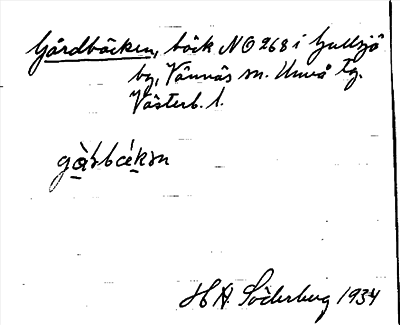 Gårdbäcken, bäck NO 268 i Gullsjö
by, Vännäs sn. Umeå tg.
Västerb. l.
gà̱ṣbáḵən
H A Söderberg 1934